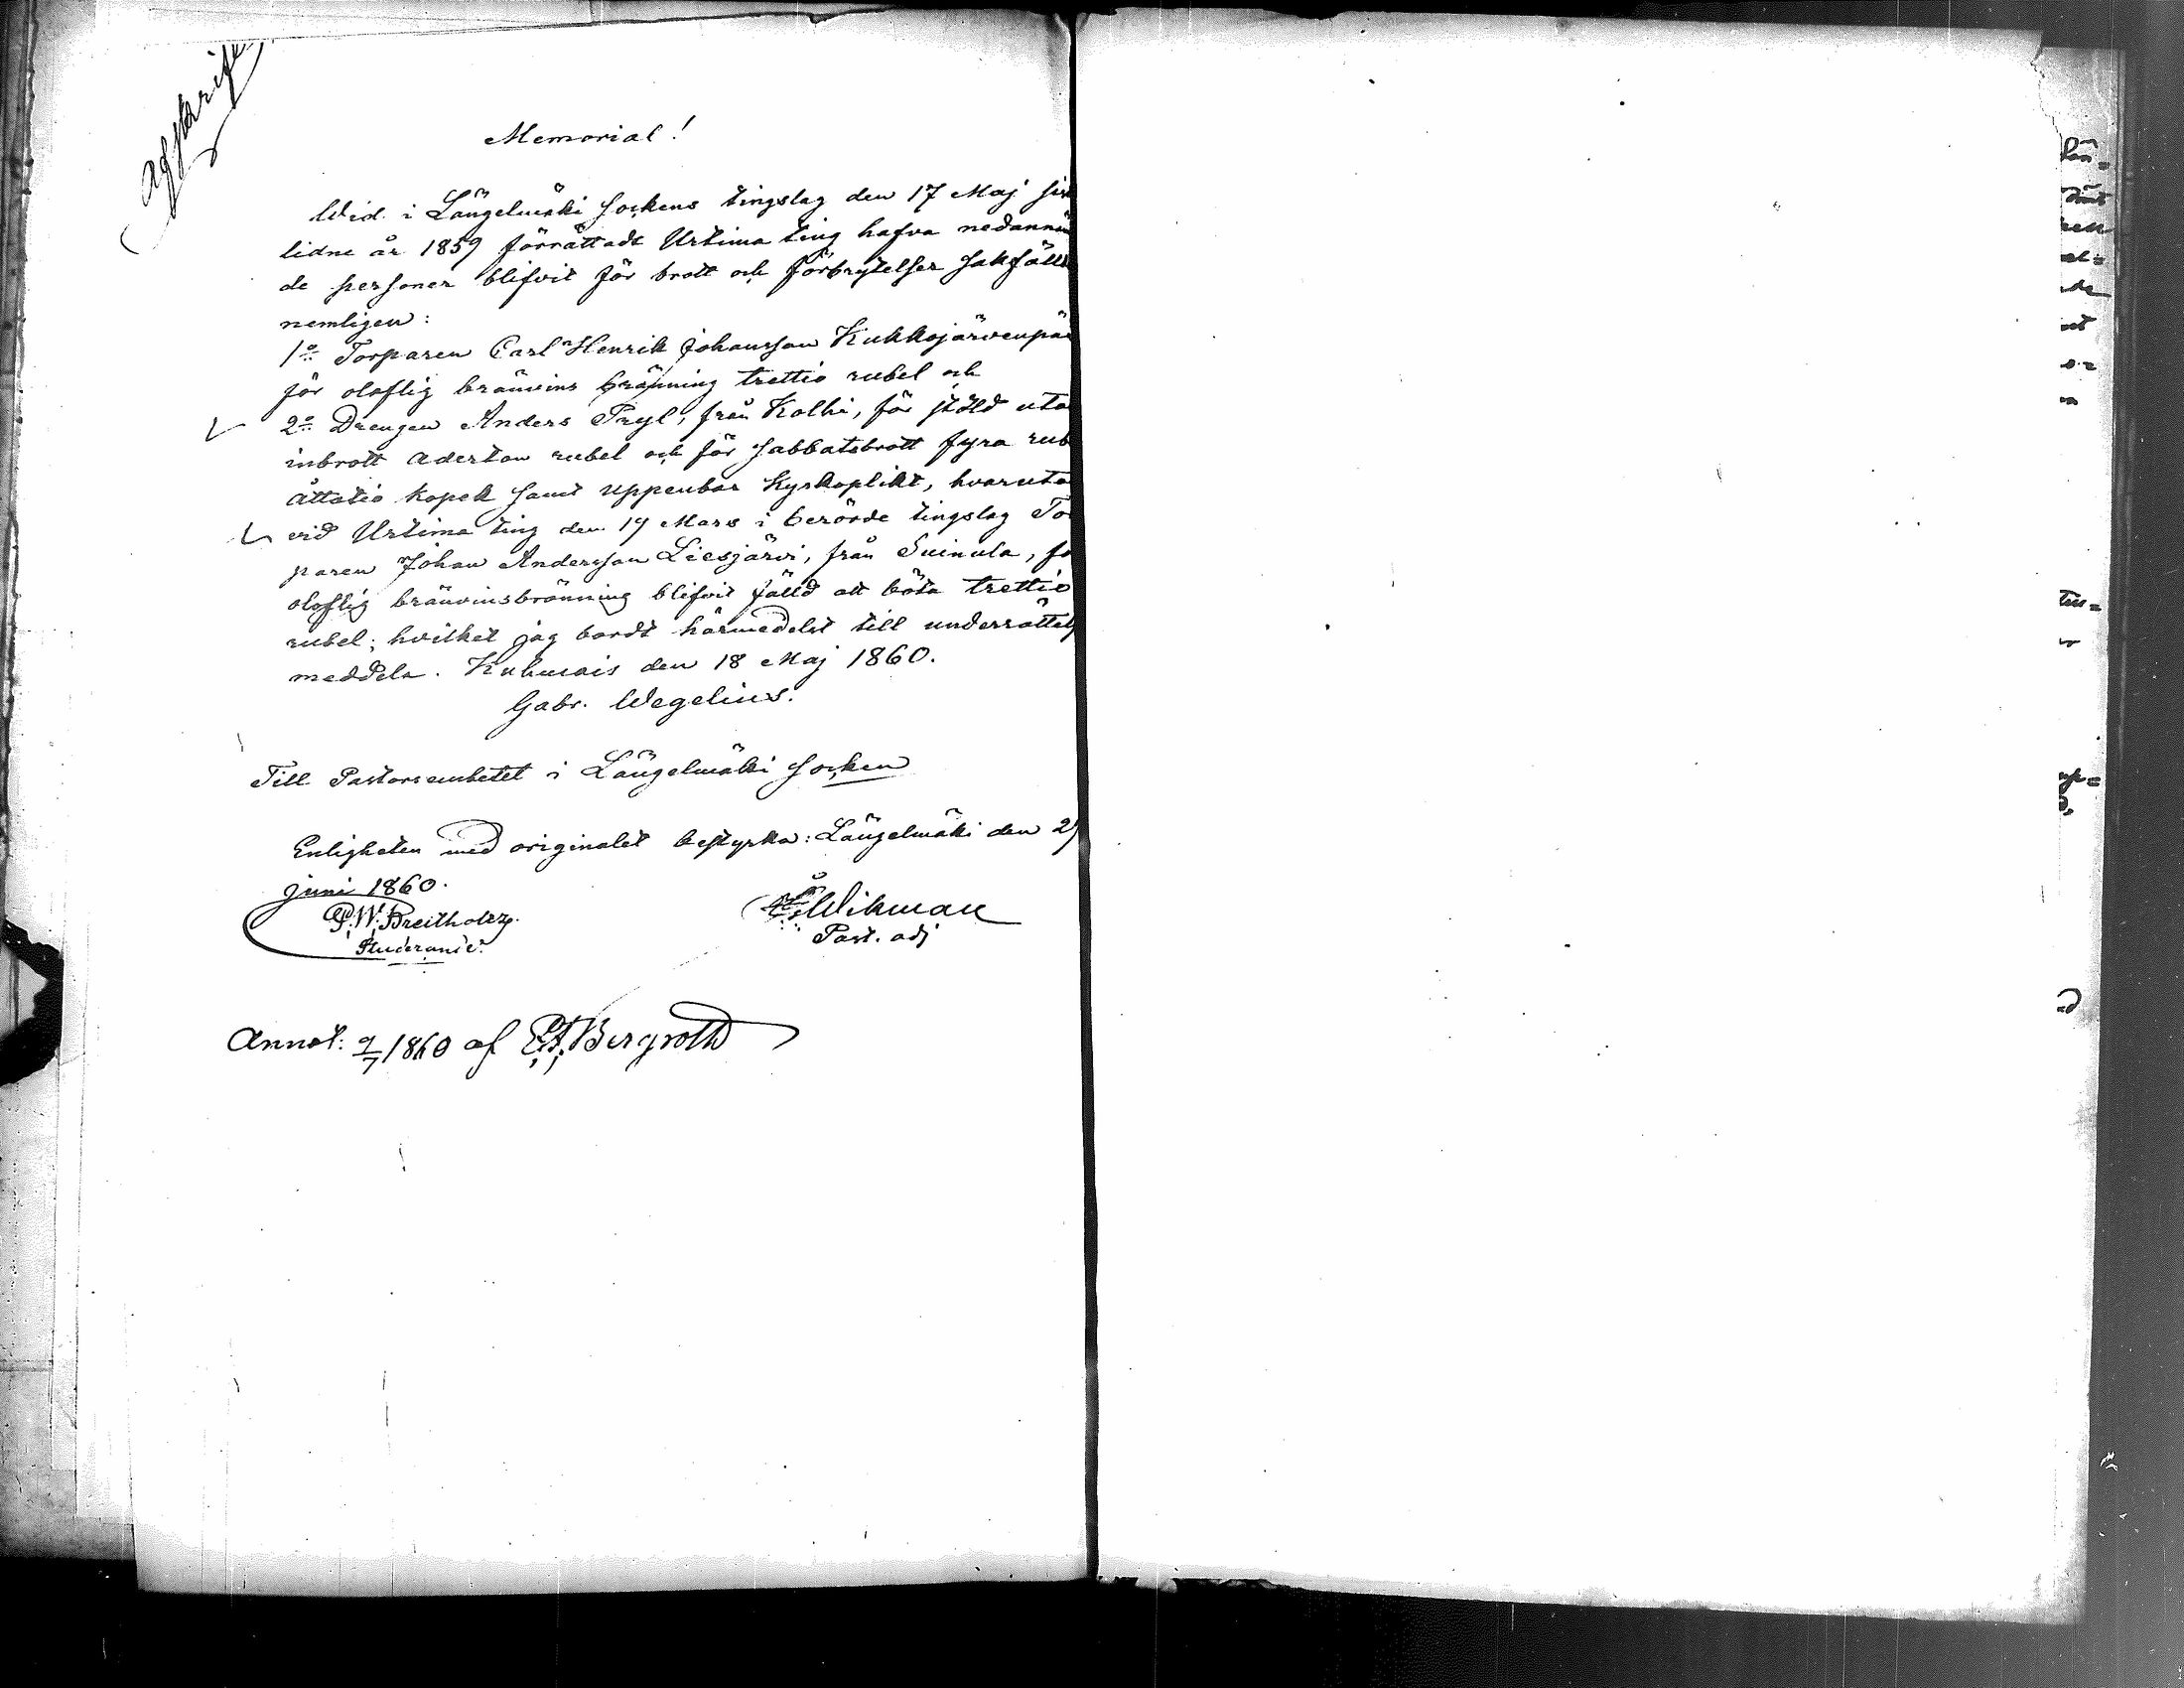 Afskrift
Memorial!
Wid i Längelmäki Sockens tingslag den 17 Maj sist
lidne år 1859 förrättadt Urtima ting hafva nedannäm
de personer blifvit för brott och förbrytelser sakfällda
nemligen:
1:o Torparen Carl Henrik Johansson Kukkojärvenpää
för oloflig bränvins bränning trettio rubel och
2:o Drengen Anders Pryl, från Kolhi, för stöld uta
inbrott aderton rubel och för sabbatsbrott fyra rub
åttatio kopek samt uppenbar kyrkoplikt, hvaruta
vid Urtima ting den 19 Mars i berörde tingslag Tor
paren Johan Andersson Liesjärvi, från Suinula, fö
oloflig bränvinsbränning blifvit fälld att böta trettio
rubel; hvilket jag bordt härmedelst till underrättels
meddela. Kuhmais den 18 Maj 1860.
Gabr. Wegelius.
Till Pastorsembetet i Längelmäki Socken
Enligheten med originalet bestyrka: Längelmäki den 29
juni 1860.
P. W. Breitholtz. Wikman
Studerande. Past. adj
Annot: 9/7 1860 af E. A. Bergroth